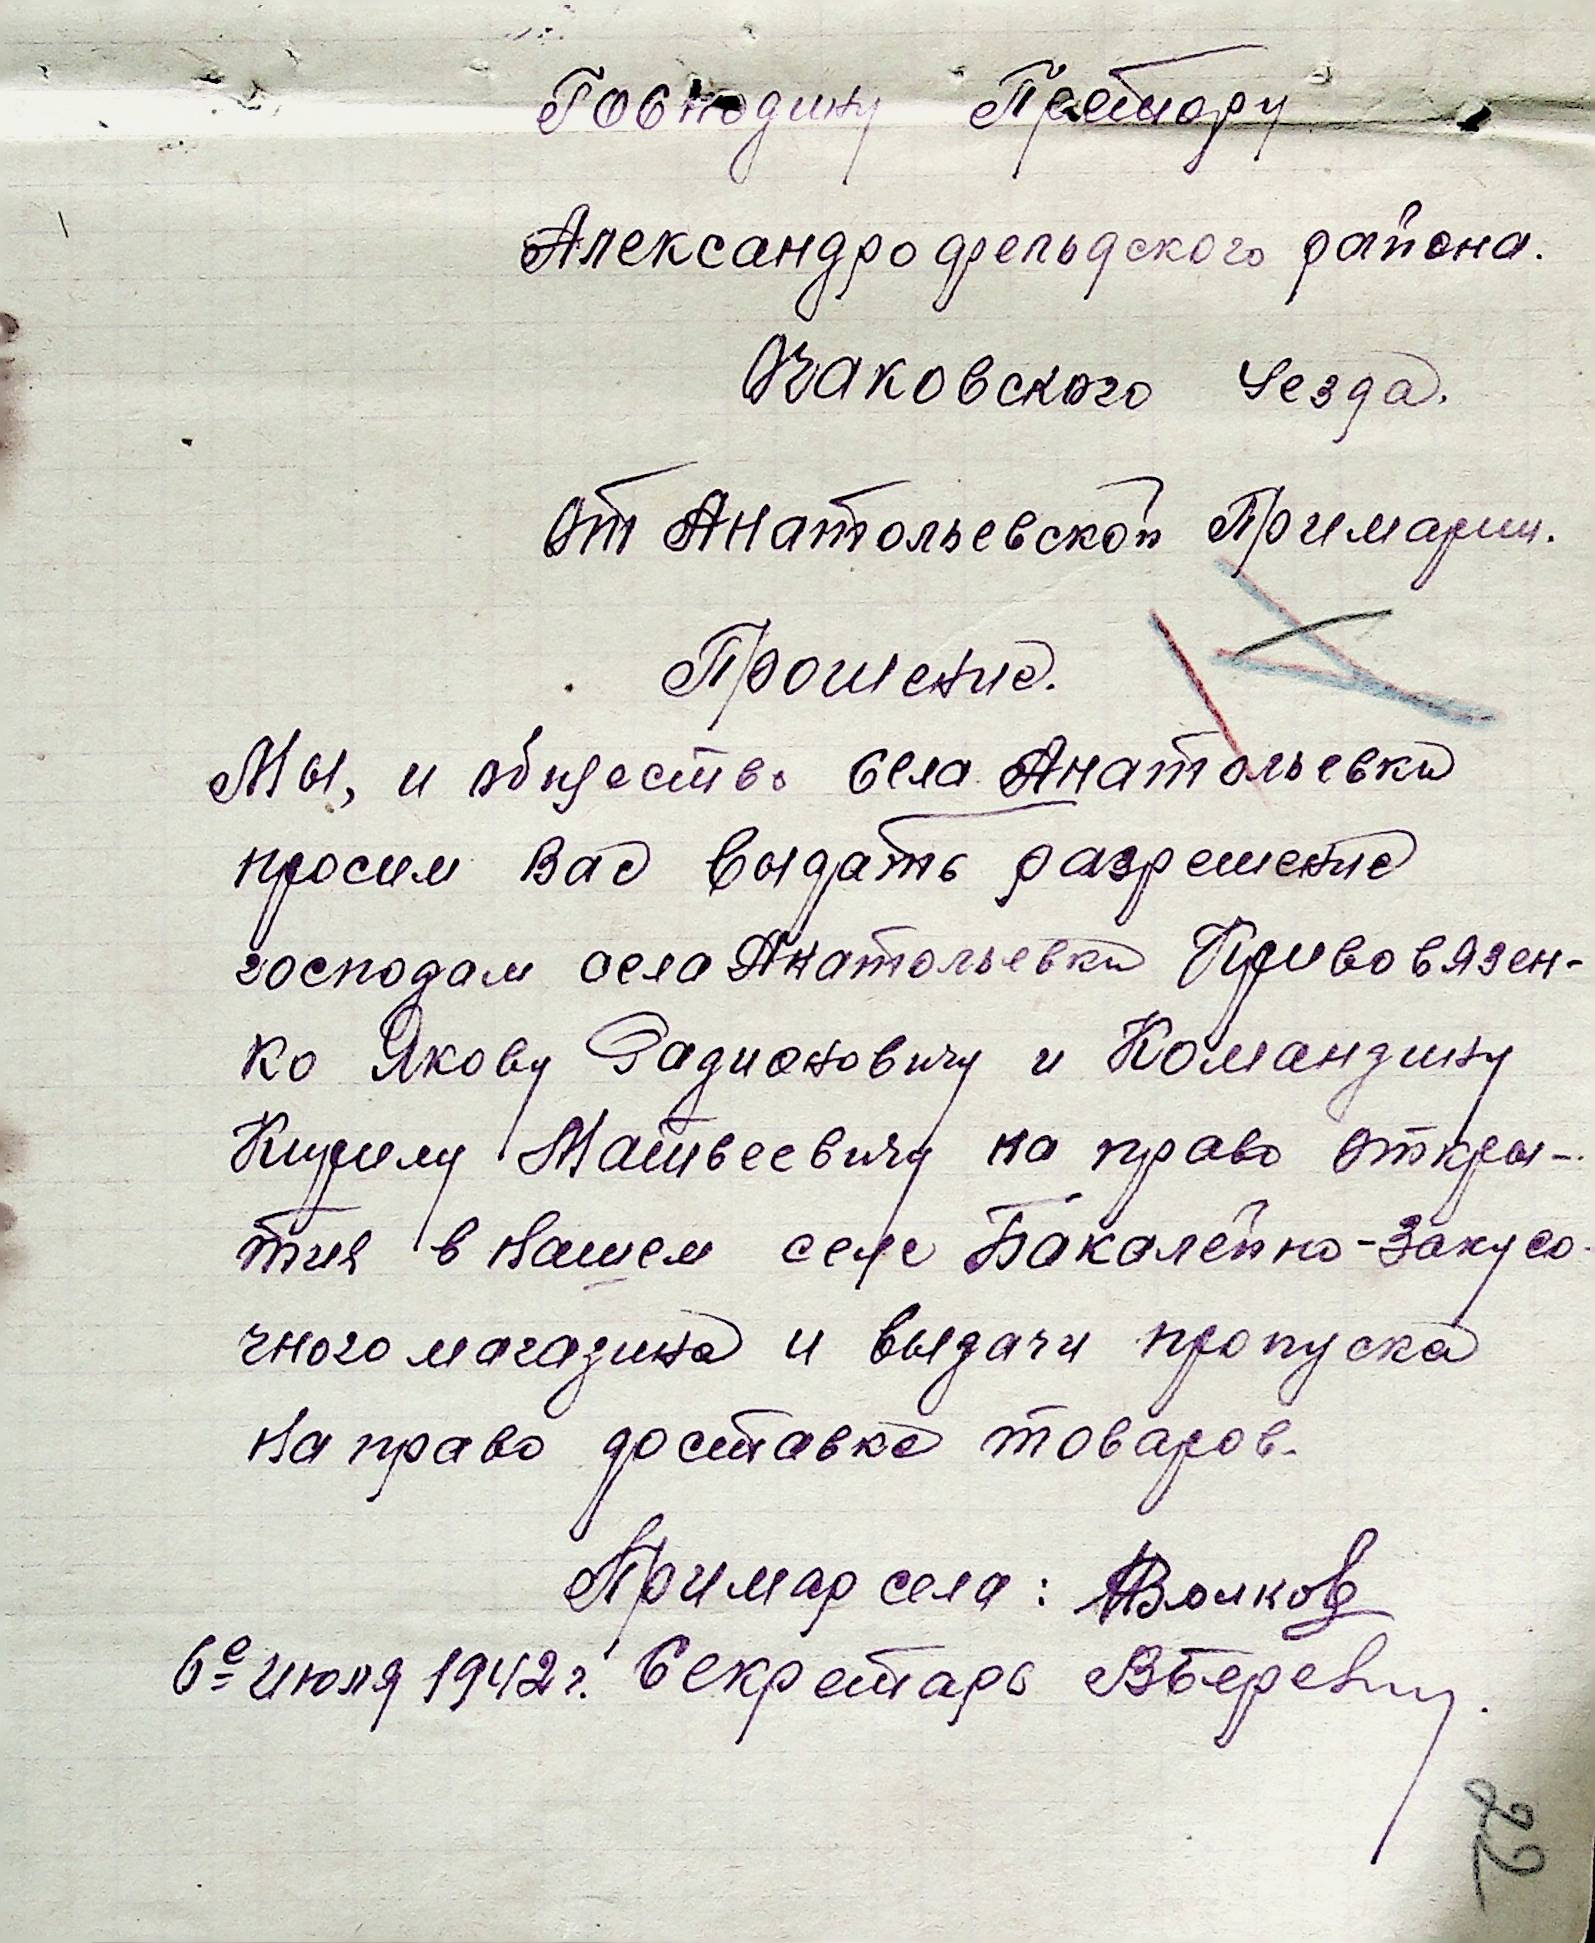 Господину Претору
Александрофельдского района.
Очаковского Уезда.
От Анатольевской Примарии.
Прошение.
Мы, и общество села Анатольевки
просим Вас выдать разрешение
господам села Анатольевки Кривовязен-
ко Якову Радионовичу и Командину
Кирилу Матвеевичу на право откры-
тия в нашем селе Бакалейно-Закусо-
чного магазина и выдачи пропуска
на право доставке товаров.
Примар села: Волков
6е июля 1942 г. Секретарь
22